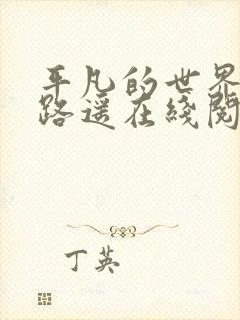 平凡的世界
路遥在线阅
丁英